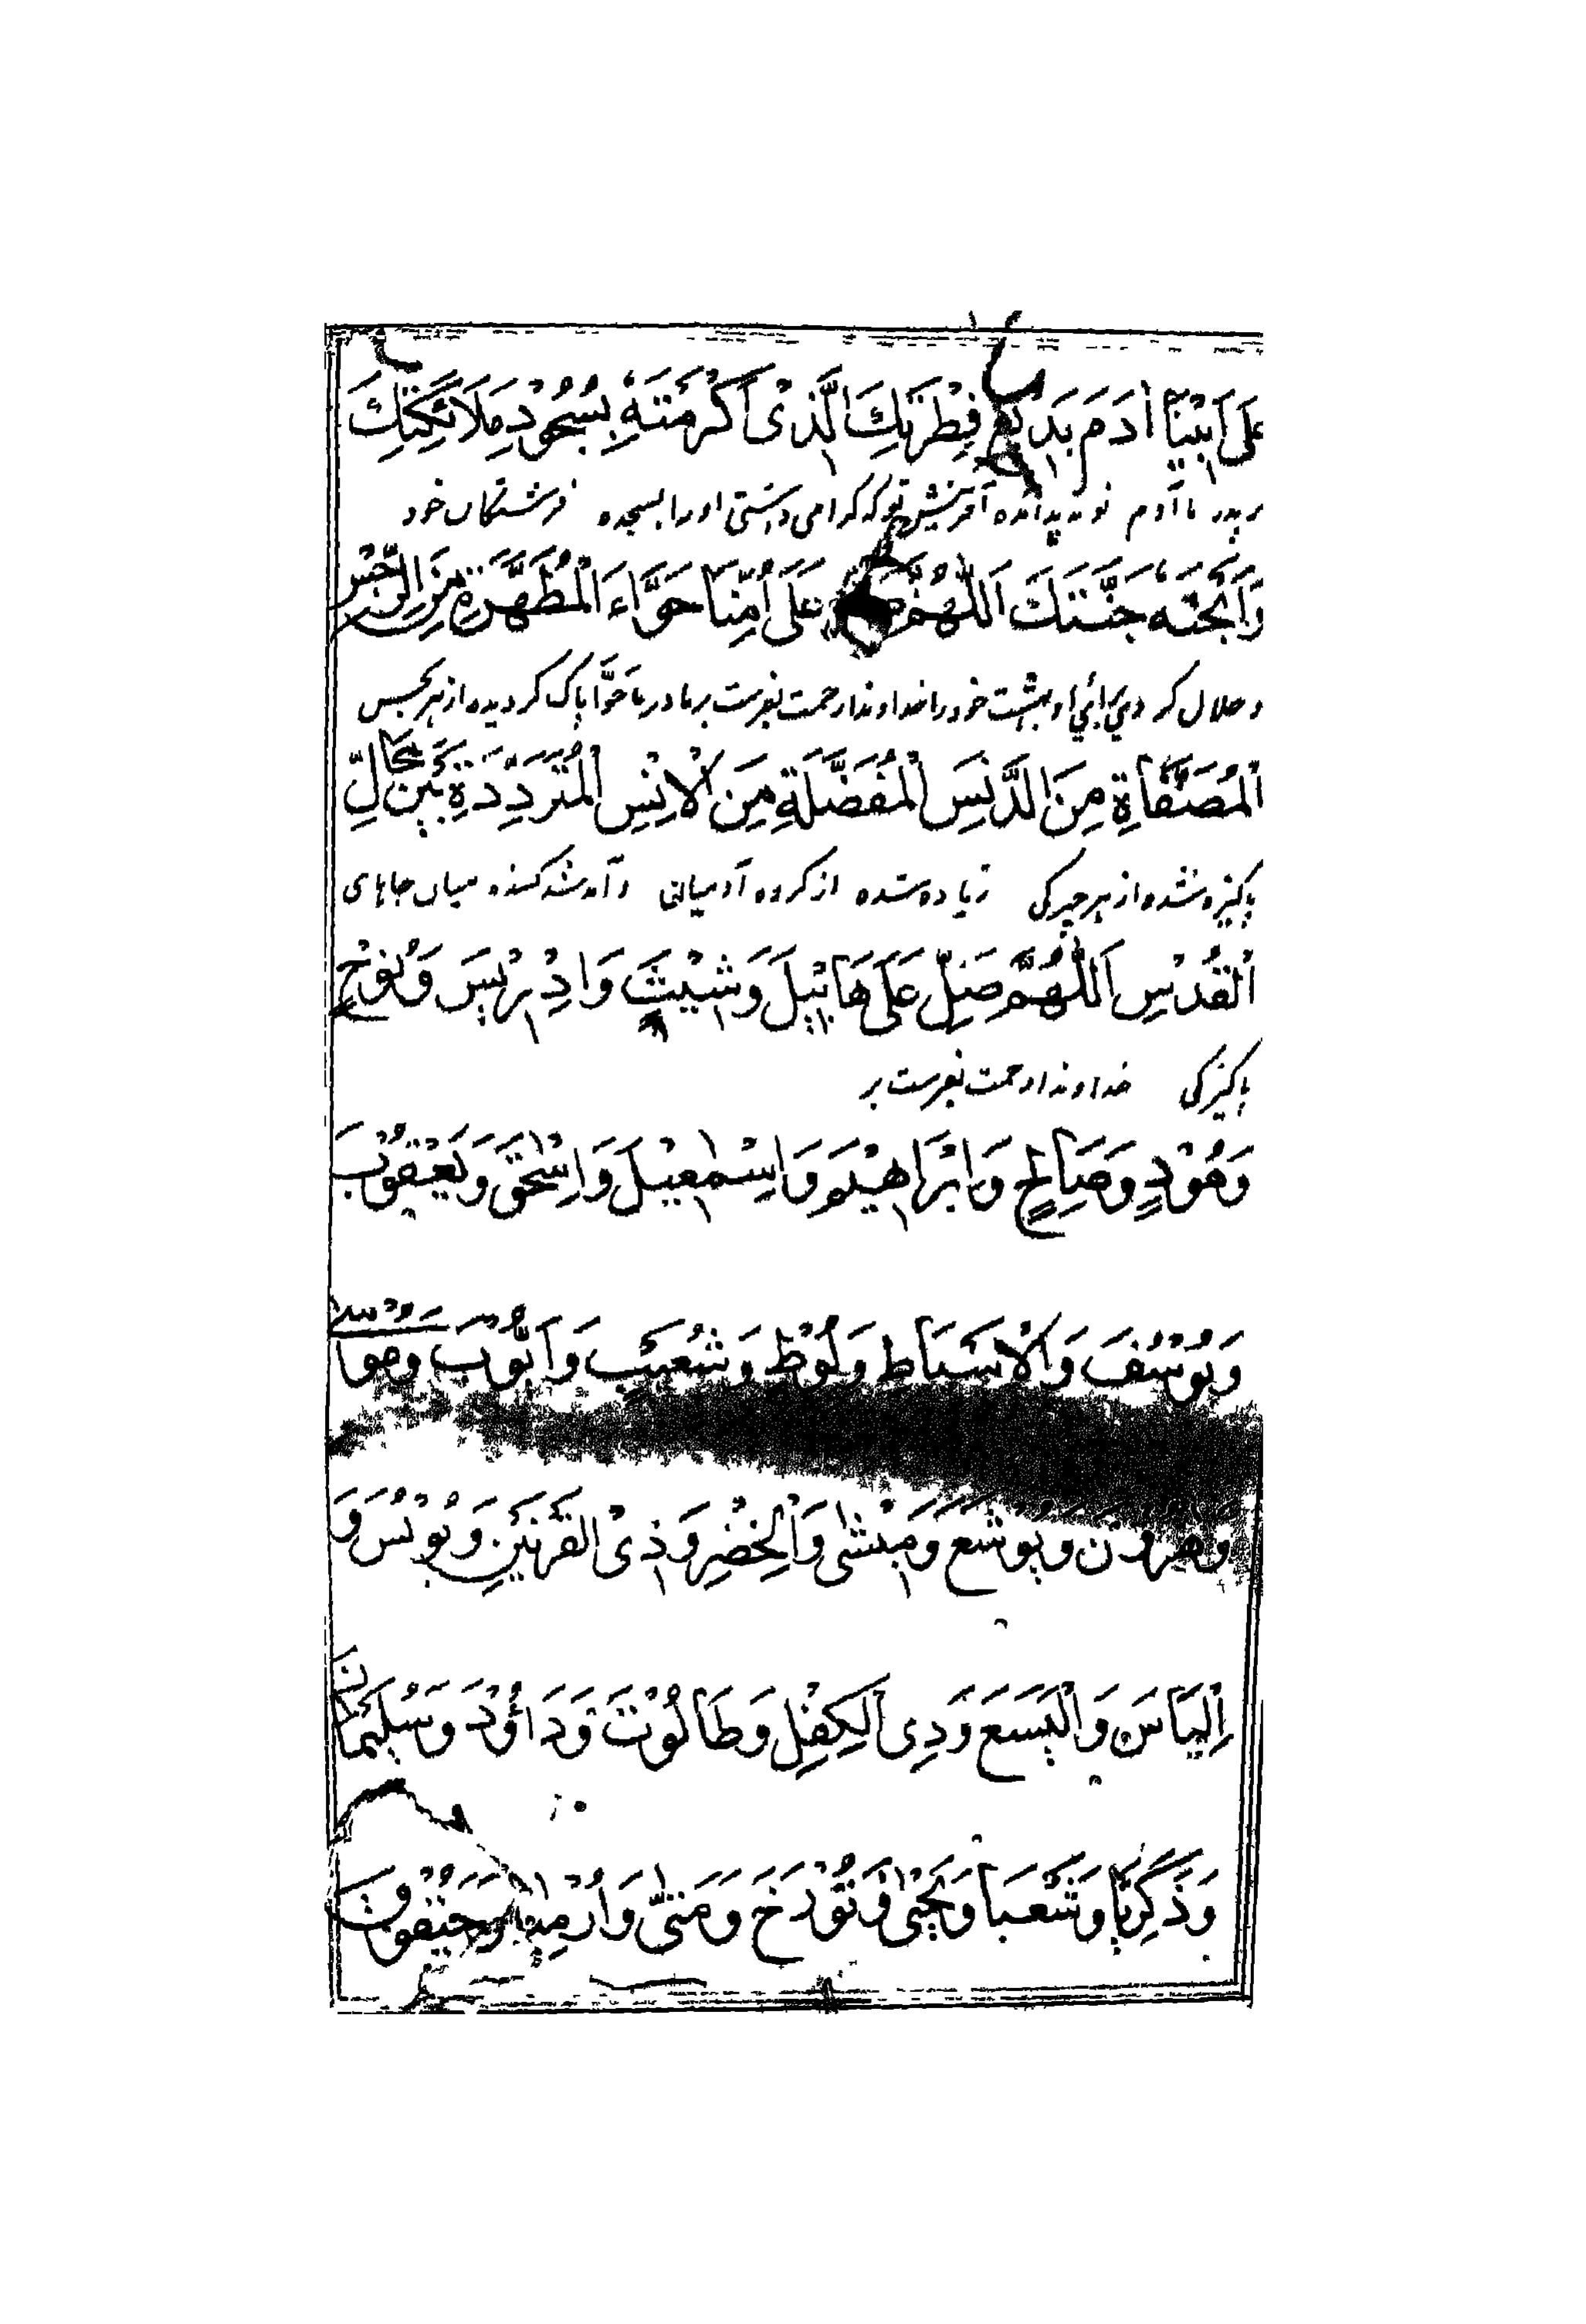 عَلَى اَبِيْنَا اٰدَمَ بَدِيْعِ فِطْرَتِكَ الَّذِىْ اَكْرَمْتَهٗ بِسُجُوْدِ مَلَائِكَتِكَ
بر پدر ما آدم نو پدید آمده آفرینش تو که گرامی داشتی او را بسجده فرشتگان خود
وَاَبَحْتَهٗ جَنَّتَكَ اَللّٰهُمَّ صَلِّ عَلَى اُمِّنَا حَوَّاءَ الْمُطَهَّرَةِ مِنَ الرِّجْسِ
و حلال کردی برای او بهشت خود را خداوندا رحمت بفرست بر مادر ما حوّا پاک گردیده از هر نجس
الْمُصَفَّاةِ مِنَ الدَّنَسِ الْمُفَضَّلَةِ مِنَ الْاِنْسِ الْمُتَرَدِّدَةِ بَيْنَ مَحَالِّ
پاکیزه شده از هر چرکی زیاده شده از گروه آدمیان و آمد شد کننده میان جاهای
الْقُدْسِ اَللّٰهُمَّ صَلِّ عَلَى هَابِيْلَ وَشِيْثَ وَاِدْرِيْسَ وَنُوْحٍ
پاکیزگی خداوندا رحمت بفرست بر
وَهُوْدٍ وَصَالِحٍ وَاِبْرَاهِيْمَ وَاِسْمٰعِيْلَ وَاِسْحٰقَ وَيَعْقُوْبَ
وَيُوْسُفَ وَالْاَسْبَاطِ وَلُوْطٍ وَشُعَيْبٍ وَاَيُّوْبَ وَمُوْسٰى
وَهٰرُوْنَ وَيُوْشَعَ وَمِيْشٰى وَالْخِضْرِ وَذِى الْقَرْنَيْنِ وَيُوْنُسَ وَ
اِلْيَاسَ وَالْيَسَعَ وَذِى الْكِفْلِ وَطَالُوْتَ وَدَاؤُدَ وَسُلَيْمَانَ
وَذَكَرِيَّا وَشَعْيَا وَيَحْيٰى وَتُوْرَخَ وَمَتّٰى وَاُرْمِيَا وَحَيْقُوْقَ